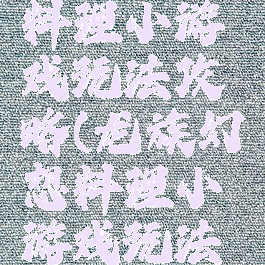 料理小游
戏玩法攻
略(龙族幻
想料理小
游戏玩法